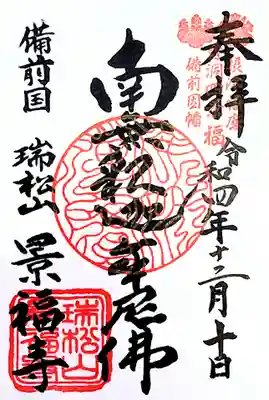 奉拝
令和四年十二月十日
南無釈迦牟尼佛
備前国
瑞松山
景福寺
備前因幡
瑞松山